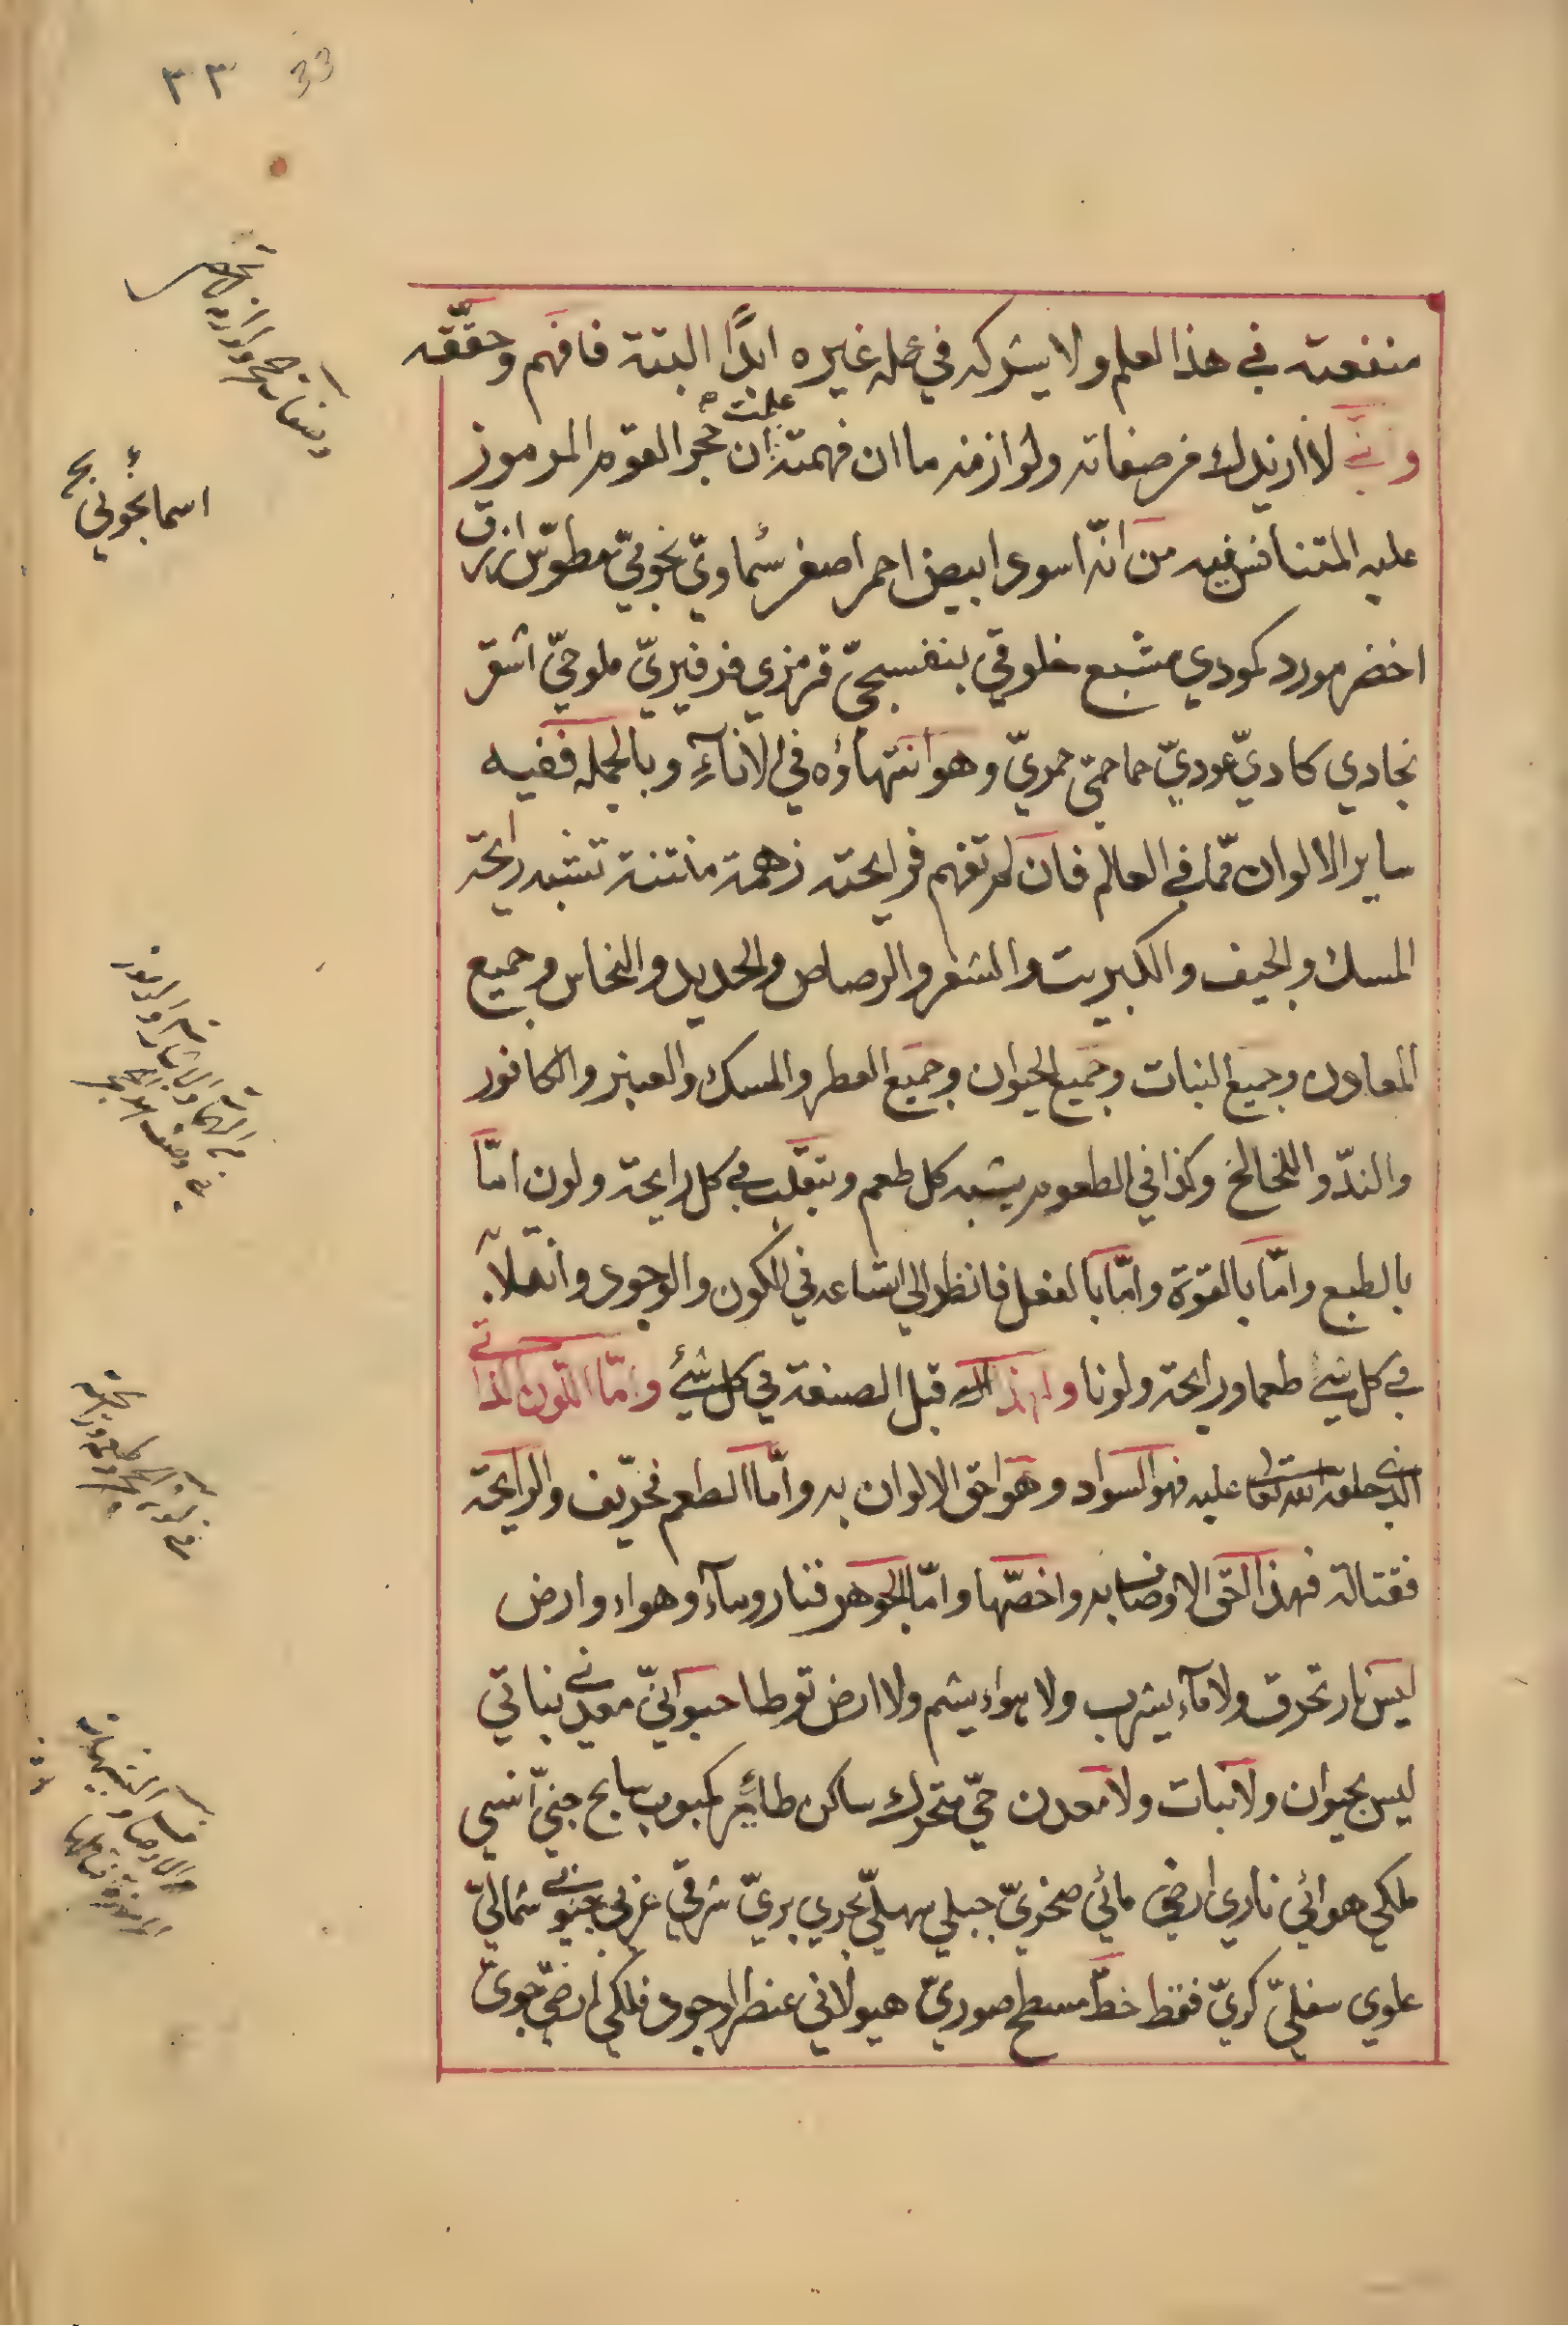 ٣٣ 33
منفعته في هذا العلم ولا يشركه في عمله غيره ابدًا البتة فافهم وحققه
واني لا ازيدك من صفاته ولوازمه ما ان فهمته علمت ان حجر القوم المرموز
عليه المتنافس فيه من انّه اسود ابيض احمر اصفر سماويّ نجوميّ مطوّس ازرق
اخضر مورد كمودي مشبع خلوقي بنفسجيّ قرمزي فرفيريّ ملوحيّ اشقر
نجادي كاديّ عوديّ حماحمي خمريّ وهو انتهاؤه في الاناء وبالجملة ففيه
ساير الالوان ممّا في العالم فان لم تفهم فرايحته زهمة منتنة تشبه رايحة
المسك والجيف والكبريت والشعر والرصاص والحديد والنحاس وجميع
المعادن وجميع النبات وجميع الحيوان وجميع العطر والمسك والعنبر والكافور
والندّ واللخالخ وكذا في الطعوم يشبه كل طعم ويتقلب في كل رايحة ولون امّا
بالطبع وامّا بالقوة وامّا بالفعل فانظر الي اتساعه في الكون والوجود وانّه لا بد
في كل شئ طعما ورايحة ولونا ولهذا قبل الصنعة في كل شئ وامّا اللون الذاتي
الذي خلقه الله تعالى عليه فهو السواد وهو احق الالوان به وامّا الطعم فحرّيف والرايحة
فقتالة فهذا احق الاوصاف به واخصّها وامّا الجوهر فنار وماء وهواء وارض
ليس نار تحرق ولا ماء يشرب ولا هواء يشم ولا ارض توطا حيوانيّ معدني نباتي
ليس بحيوان ولا نبات ولا معدن حيّ متحرك ساكن طائر مكبوب سابح جنيّ انسي
ملكي هوائي ناري ارضي مائي صخريّ جبلي سهليّ بحري بريّ شرقي غربي جنوبي شماليّ
علوي سفليّ كريّ فقط خطّ مسطح صوريّ هيولاني عنصر الوجود فلكي ارضيّ جويّ